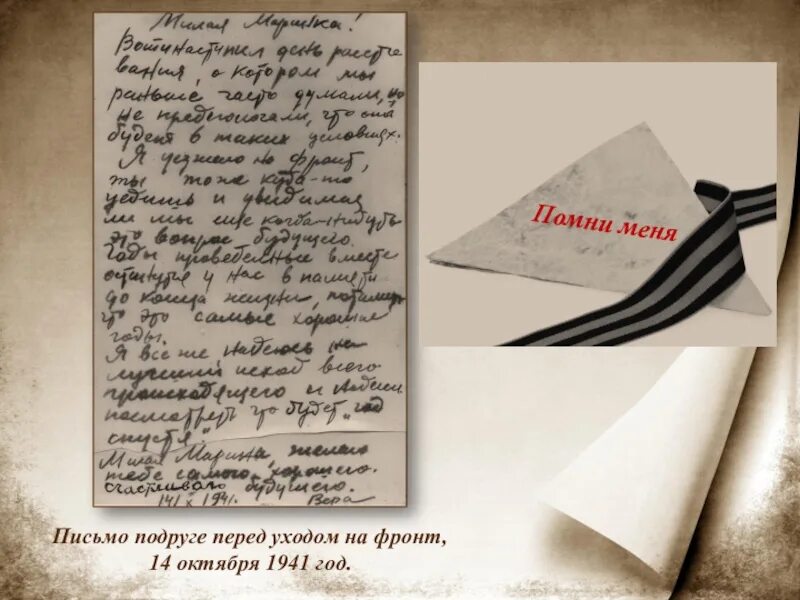 Милая Маришка!
Вот и наступил день расста
вания, о котором мы
раньше часто думали, но
не предпологали, что она
будет в таких условиях.
Я уезжаю на фронт,
ты тоже куда-то
уедишь и увидимся
ли мы еще когда-нибудь
это вопрос будущего.
Годы проведенные вместе
останутся у нас в памяти
до конца жизни, потому
что это самые хорошие
годы.
Я все же надеюсь на
лучший исход всего
происходящего и
посмотреть что будет „год
спустя".
Милая Марина, желаю
тебе самого хорошего.
счастливого будущего.
14/X 1941. Вера
Помни меня
Письмо подруге перед уходом на фронт,
14 октября 1941 год.